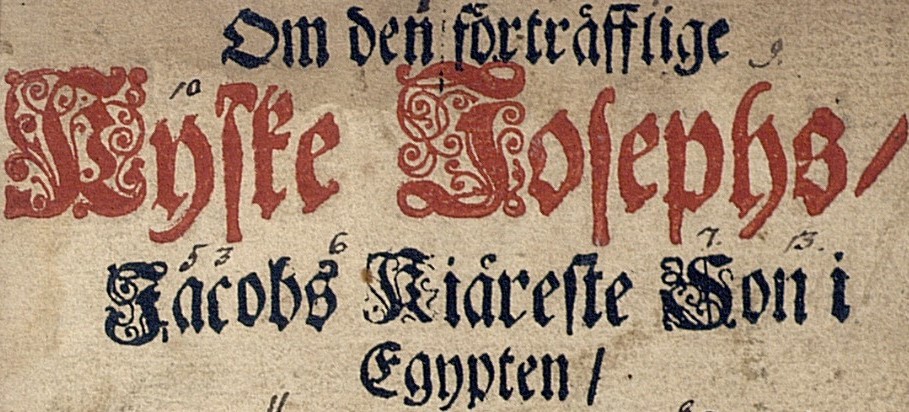 Om den förträfflige
9.
10
Kyske Josephs/
5 3 6 7. 13.
Jacobs Kiäreste Son i
Egypten/
11